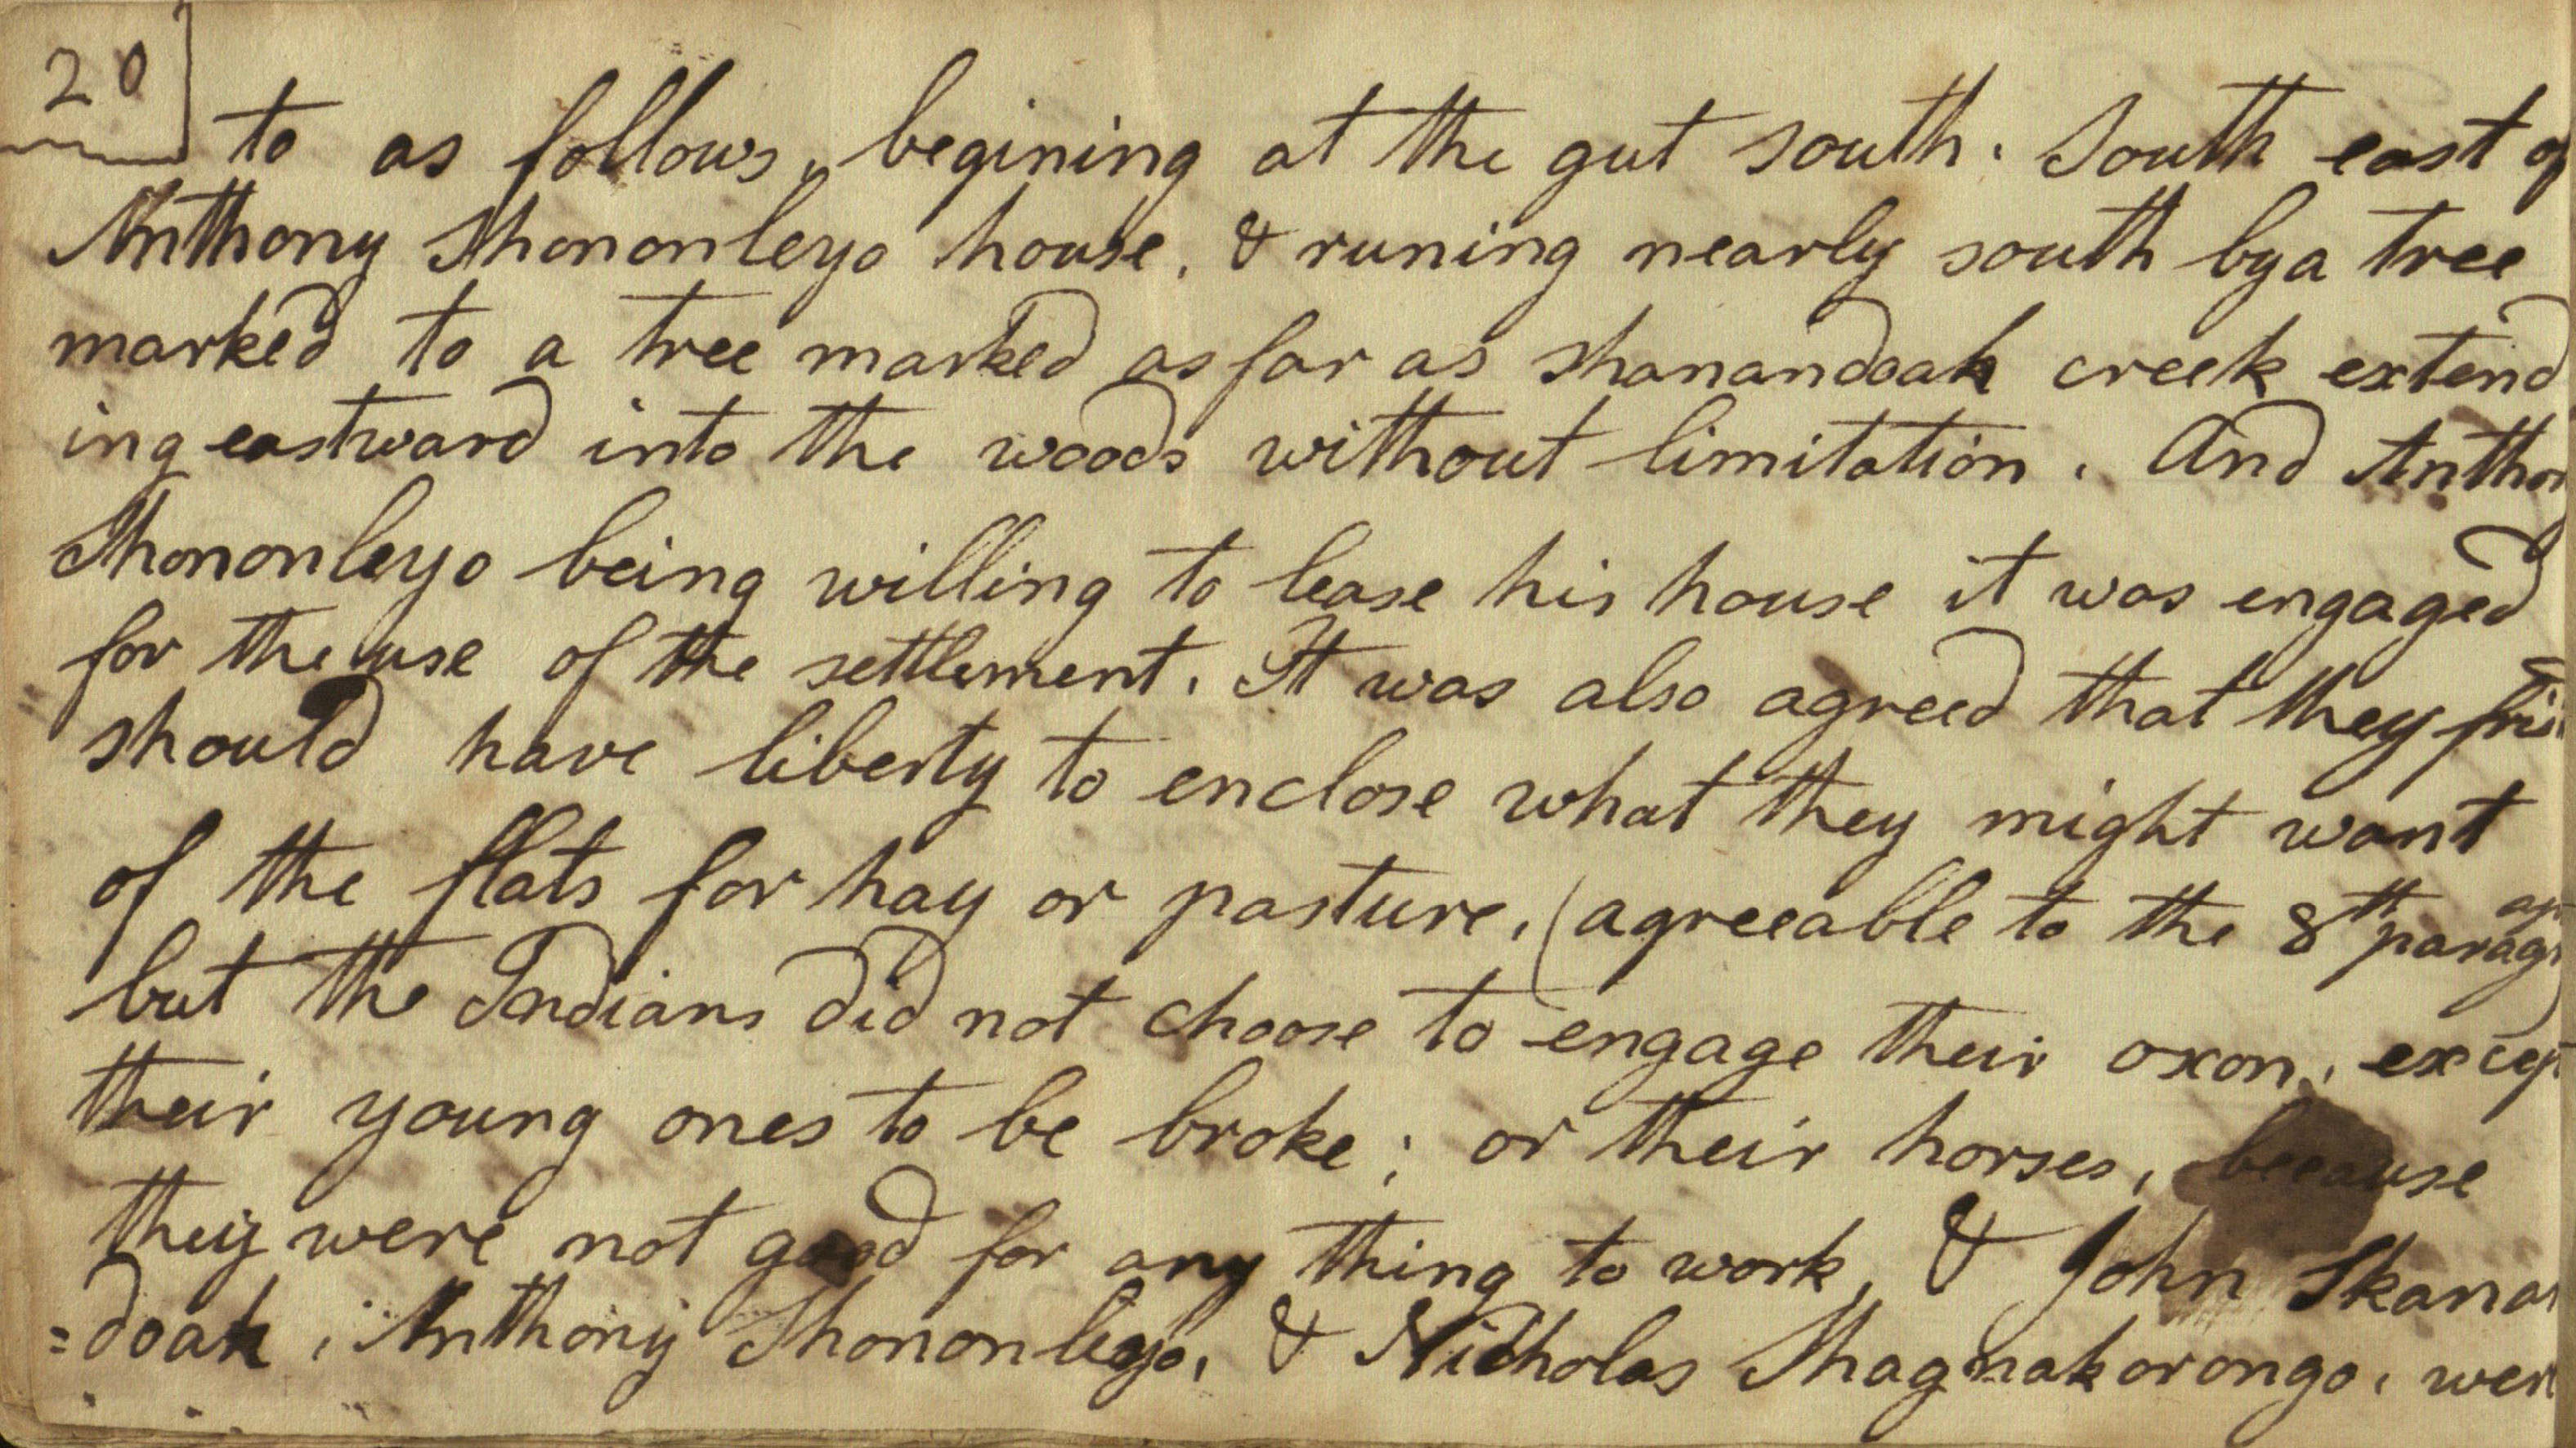 20
to as follows, begining at the gut south. South east of
Anthony Shononleyo house, & runing nearly south by a tree
marked to a tree marked as far as Shanandoah creek extend
ing eastward into the woods without limitation. And Anthon
Shononleyo being willing to lease his house it was engaged
for the use of the settlement. It was also agreed that they
should have liberty to enclose what they might want
of the flats for hay or pasture, (agreeable to the 8th paragr
but the Indians did not choose to engage their oxon, except
their young ones to be broke; or their horses, because
they were not good for any thing to work, & John Skanan
=doah, Anthony Shononleyo, & Nicholas Shagnakorongo, were